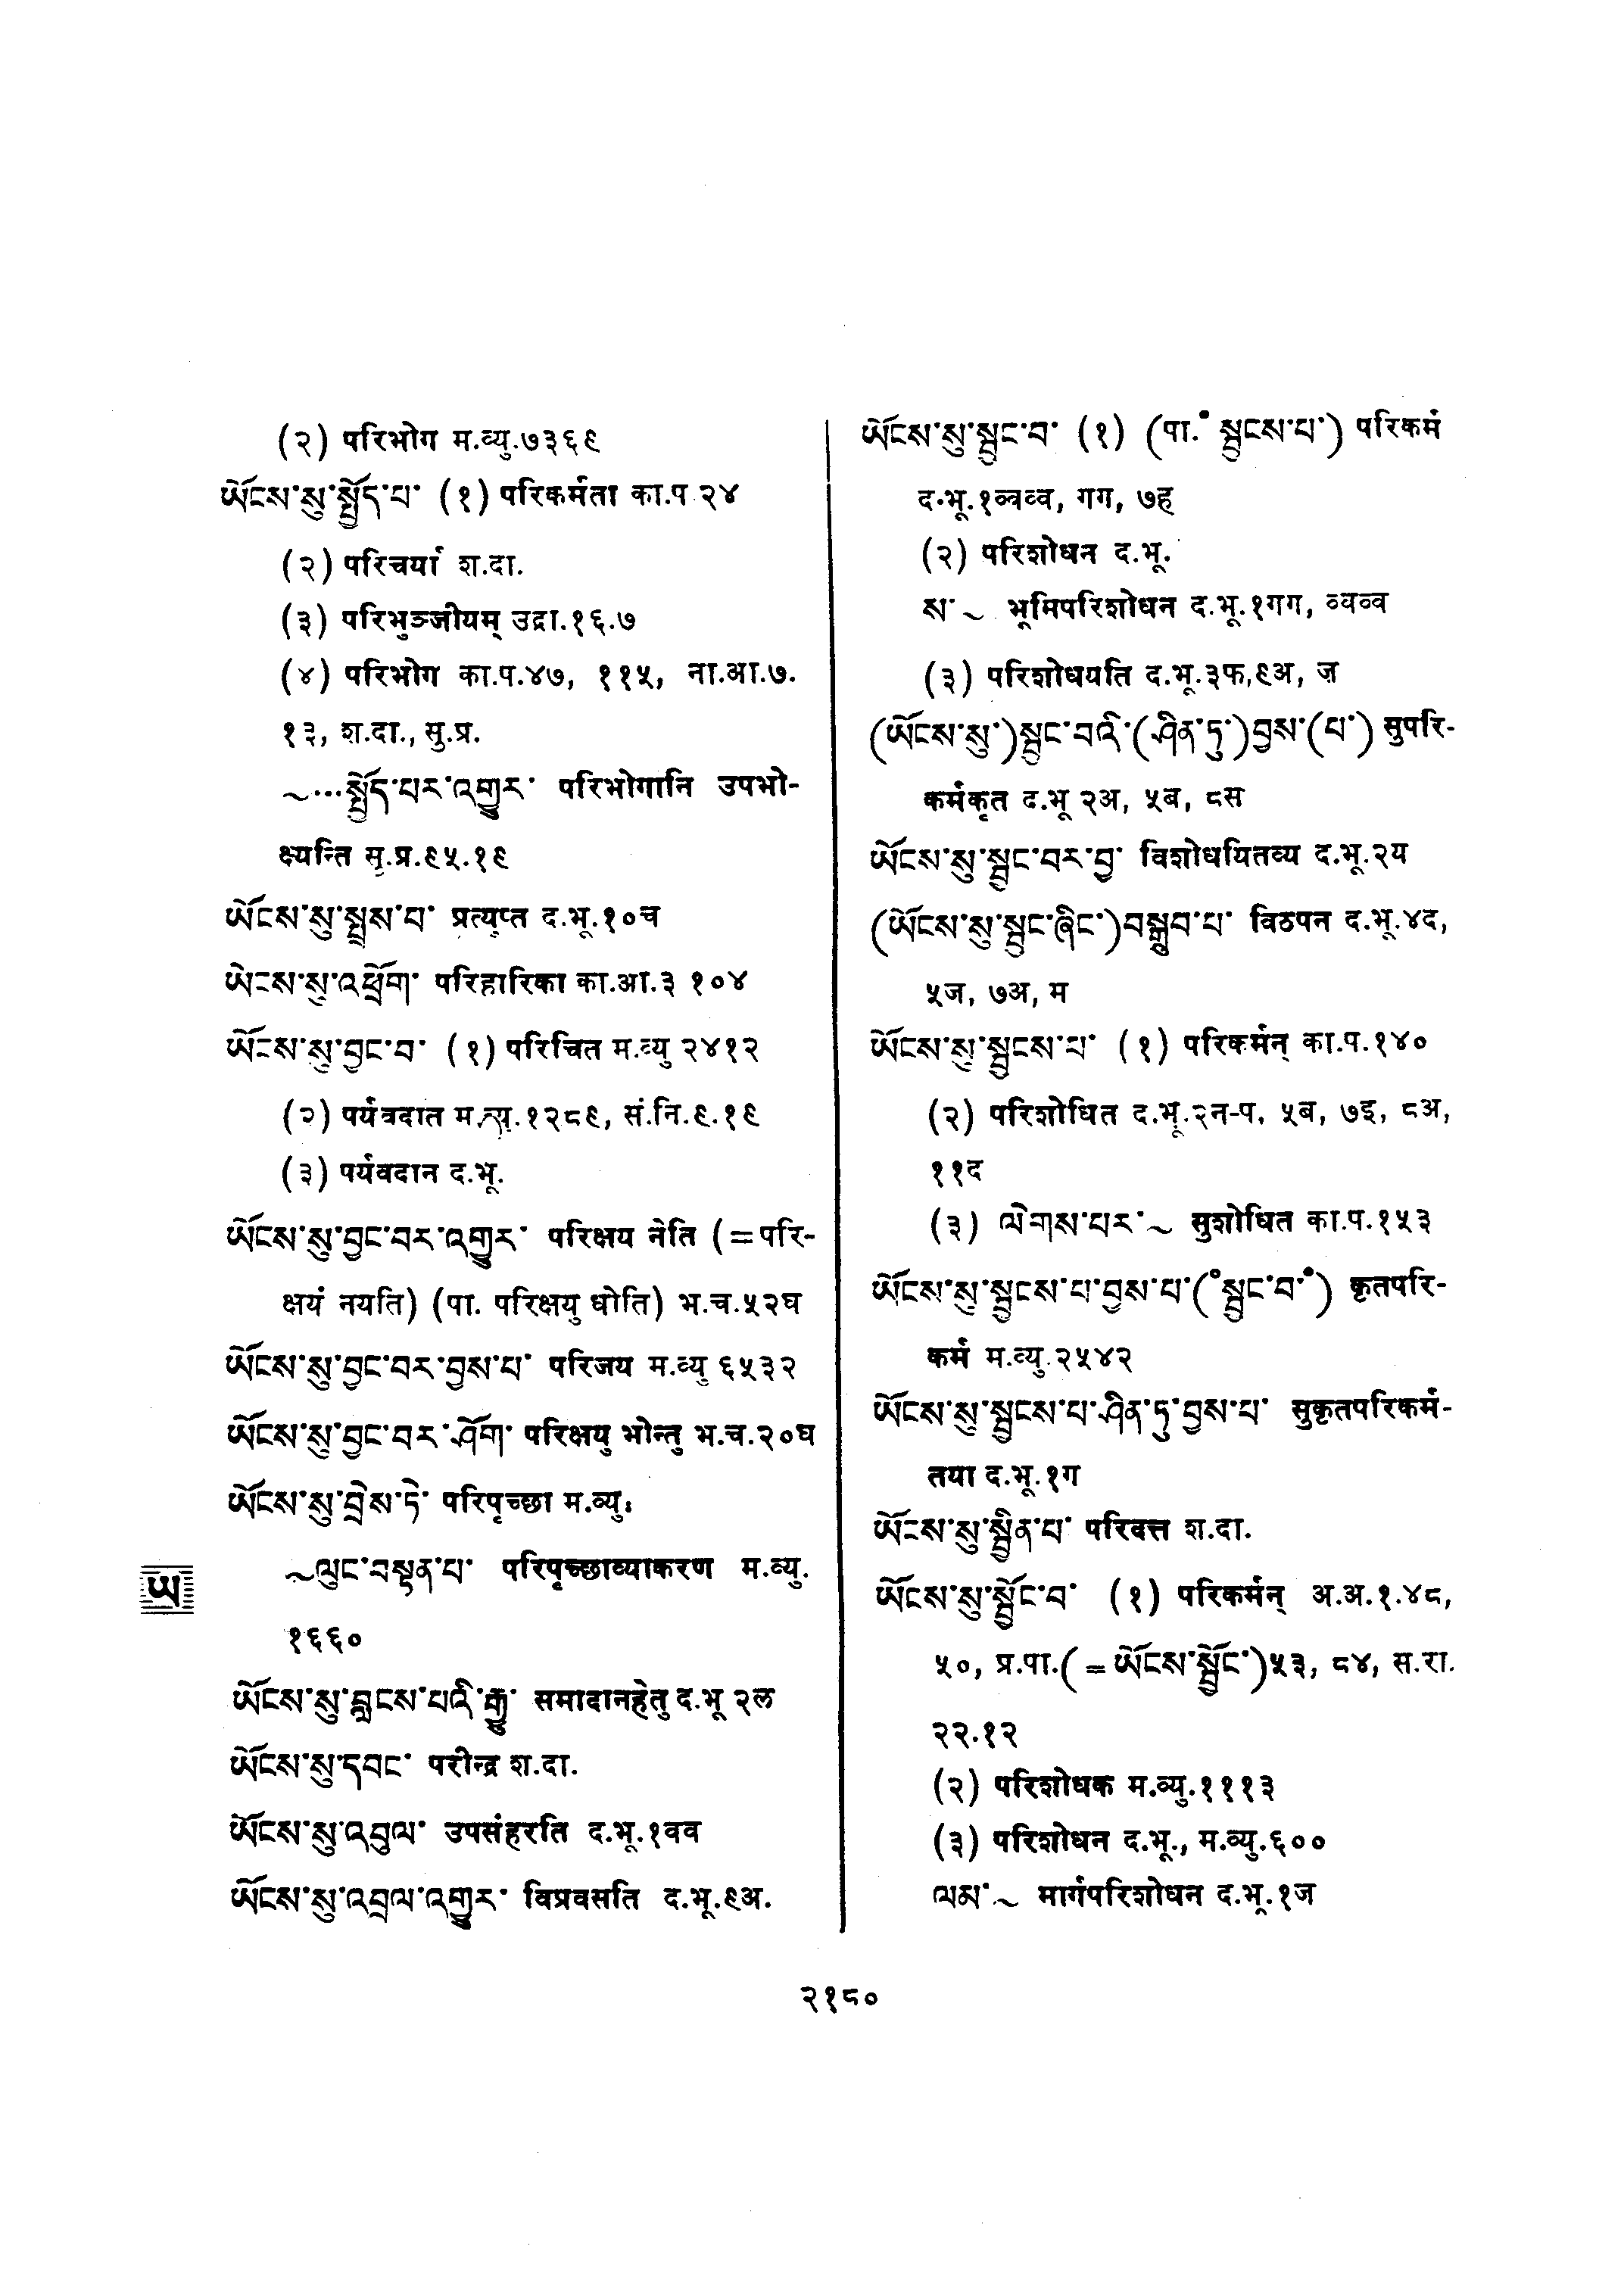 (२) परिभोग म.व्यु.७३६९
ཡོངས་སུ་སྤྱོད་པ་ (१) परिकर्मता का.प.२४
(२) परिचर्या श.दा.
(३) परिभुञ्जीयम् उद्रा.१६.७
(४) परिभोग का.प.४७, ११५, ना.आ.७.
१३, श.दा., सु.प्र.
~…སྤྱོད་པར་འགྱུར་ परिभोगानि उपभो-
क्ष्यन्ति सु.प्र.९५.१९
ཡོངས་སུ་སྤྲས་པ་ प्रत्युप्त द.भू.१०च
ཡོངས་སུ་འཕྲོག་ परिहारिका का.आ.३ १०४
ཡོངས་སུ་བྱང་བ་ (१) परिचित म.व्यु २४१२
(२) पर्यवदात म.व्यु.१२८९, सं.नि.९.१९
(३) पर्यवदान द.भू.
ཡོངས་སུ་བྱང་བར་འགྱུར་ परिक्षय नेति (=परि-
क्षयं नयति) (पा. परिक्षयु धोति) भ.च.५२घ
ཡོངས་སུ་བྱང་བར་བྱས་པ་ परिजय म.व्यु ६५३२
ཡོངས་སུ་བྱང་བར་ཤོག་ परिक्षयु भोन्तु भ.च.२०घ
ཡོངས་སུ་བྲིས་ཏེ་ परिपृच्छा म.व्यु.
~ལུང་བསྟན་པ་ परिपृच्छाव्याकरण म.व्यु.
१६६०
ཡ
ཡོངས་སུ་བླངས་པའི་རྒྱུ་ समादानहेतु द.भू २ल
ཡོངས་སུ་དབང་ परीन्द्र श.दा.
ཡོངས་སུ་འབུལ་ उपसंहरति द.भू.१वव
ཡོངས་སུ་འབྲལ་འགྱུར་ विप्रवसति द.भू.९अ.
ཡོངས་སུ་སྦྱང་བ་ (१) (पा.॰ སྦྱངས་པ་) परिकर्म
द.भू.१व्वव्व, गग, ७ह
(२) परिशोधन द.भू.
ས་ ~ भूमिपरिशोधन द.भू.१गग, व्वव्व
(३) परिशोधयति द.भू.३फ,९अ, ज
(ཡོངས་སུ་)སྦྱང་བའི་(ཤིན་ཏུ་)བྱས་(པ་) सुपरि-
कर्मकृत द.भू २अ, ५ब, ८स
ཡོངས་སུ་སྦྱང་བར་བྱ་ विशोधयितव्य द.भू.२य
(ཡོངས་སུ་སྦྱང་ཞིང་)བསྒྲུབ་པ་ विठपन द.भू.४द,
५ज, ७अ, म
ཡོངས་སུ་སྦྱངས་པ་ (१) परिकर्मन् का.प.१४०
(२) परिशोधित द.भू.२न-प, ५ब, ७इ, ८अ,
११द
(३) ལེགས་པར་~ सुशोधित का.प.१५३
ཡོངས་སུ་སྦྱངས་པ་བྱས་པ་(॰སྦྱང་བ་॰) कृतपरि-
कर्म म.व्यु.२५४२
ཡོངས་སུ་སྦྱངས་པ་ཤིན་ཏུ་བྱས་པ་ सुकृतपरिकर्म-
तया द.भू.१ग
ཡོངས་སུ་སྦྱིན་པ་ परिदत्त श.दा.
ཡོངས་སུ་སྦྱོང་བ་ (१) परिकर्मन् अ.अ.१.४८,
५०, प्र.पा.(=ཡོངས་སྦྱོང་)५३, ८४, स.रा.
२२.१२
(२) परिशोधक म.व्यु.१११३
(३) परिशोधन द.भू., म.व्यु.६००
ལམ་~ मार्गपरिशोधन द.भू.१ज
२१८०